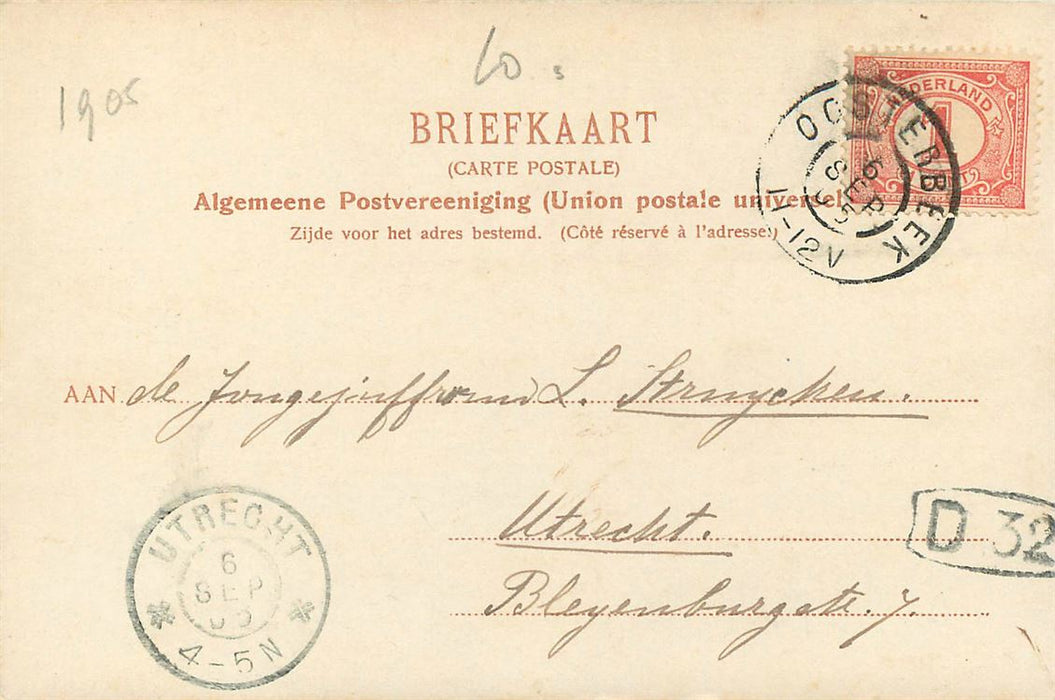 1905
LO. s
BRIEFKAART
(CARTE POSTALE)
Algemeene Postvereeniging (Union postale universel
Zijde voor het adres bestemd. (Côté réservé à l'adresse.)
NEDERLAND
1
OOSTERBEEK
6
SEP
05
11-12V
AAN de Jongejuffrouw L. Struycken.
Utrecht.
Bleyenburgstr. 7.
D 32
UTRECHT
6
SEP
05
4-5N